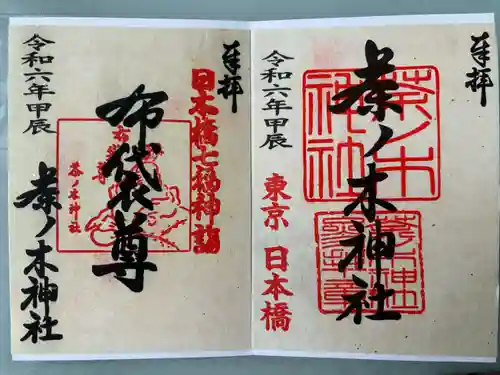 奉拝
茶ノ木神社
茶ノ木
神社
東京 日本橋
令和六年甲辰
奉拝
日本橋七福神詣
布袋尊
布袋尊
茶ノ木神社
茶ノ木神社
令和六年甲辰